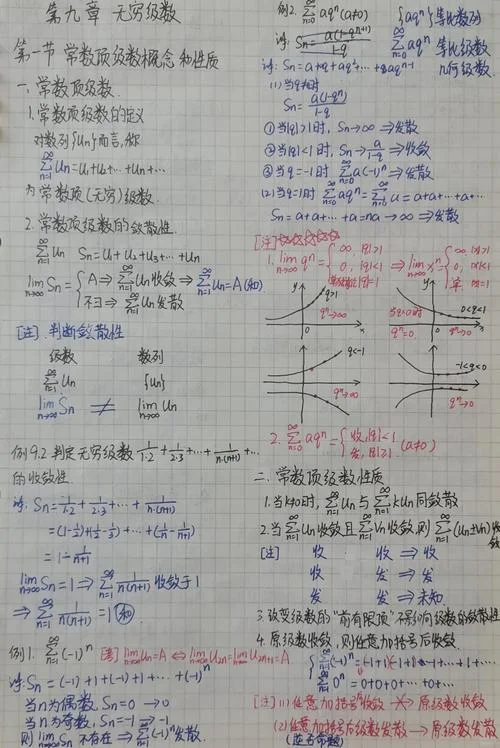 第九章 无穷级数
第一节 常数项级数概念和性质
一、常数项级数.
1.常数项级数的定义
对数列{Un}而言,称
∞∑n=1 Un=U1+U2+…+Un+…
为常数项(无穷)级数.
2.常数项级数的敛散性.
∞∑n=1 Un Sn=U1+U2+U3+…+Un
lim n→∞ Sn={A⇒∞∑n=1 Un收敛⇒∞∑n=1 Un=A(和)
不∃⇒∞∑n=1 Un发散
[注] 判断敛散性
级数 数列
∞∑n=1 Un {Un}
lim n→∞ Sn ≠ lim n→∞ Un
例9.2 判定无穷级数 1/1·2+1/2·3+…+1/n·(n+1)+…
的收敛性.
解: Sn=1/1·2+1/2·3+…+1/n·(n+1)
=(1-1/2)+(1/2-1/3)+…+(1/n-1/n+1)
=1-1/n+1
lim n→∞ Sn=1⇒∞∑n=1 1/n(n+1)收敛于1
⇒∞∑n=1 1/n(n+1)=1(和)
例1. ∞∑n=1 (-1)^n lim n→∞ Un=A⇔lim n→∞ U2n=lim n→∞ U2n+1=A
解: Sn=(-1)+1+(-1)+1+…+(-1)^n
当n为偶数 Sn=0→0
当n为奇数, Sn=-1→-1
则 lim n→∞ Sn 不存在⇒∞∑n=1 (-1)^n发散.
例2. ∞∑n=0 aq^n (a≠0) {aq^n}等比数列
∞∑n=0 aq^n 等比级数
几何级数.
解: Sn=a+aq+aq²+…+aq^n-1
(1)当q≠1时
Sn=a(1-q^n)/1-q
①当|q|>1时, Sn→∞⇒发散
②当|q|<1时, Sn→a/1-q⇒收敛
③当q=-1时 ∞∑n=0 a(-1)^n⇒发散
(2)当q=1时 ∞∑n=0 aq^n=∞∑n=0 a=a+a+…+a+…
Sn=a+a+…+a=na→∞⇒发散
[注]
1. lim n→∞ q^n={∞, |q|>1
0, |q|<1 ⇒lim n→∞ x^n={∞, |x|>1
0, |x|<1
y q>1 q^n→∞ 0 x
当q<0时 q^n=0 y 0<q<1 q^n→0 0 x
q<-1 q^n→∞
-1<q<0 q^n→0
2. ∞∑n=0 aq^n={收, |q|<1
发, |q|≥1 (a≠0)
二、常数项级数性质
1.当k≠0时, ∞∑n=1 Un与∞∑n=1 kUn同敛散
2.当∞∑n=1 Un收敛且∞∑n=1 Vn收敛,则∞∑n=1 (Un±Vn)收敛
[注] 收 收⇒收
收 发⇒发
发 发⇒未知.
3.改变级数的“前有限项”不影响级数的敛散性
4.原级数收敛,则任意加括号后收敛.
{∞∑n=1 (-1)^n=(-1+1)+(-1+1)+…-1+…+1+…
∞∑n=1 0^n=0+0+0+…+0+…
[注](1)任意加括号收敛⇏原级数收敛
(2)任意加括号后级数发散⇒原级数发散
(逆否命题)